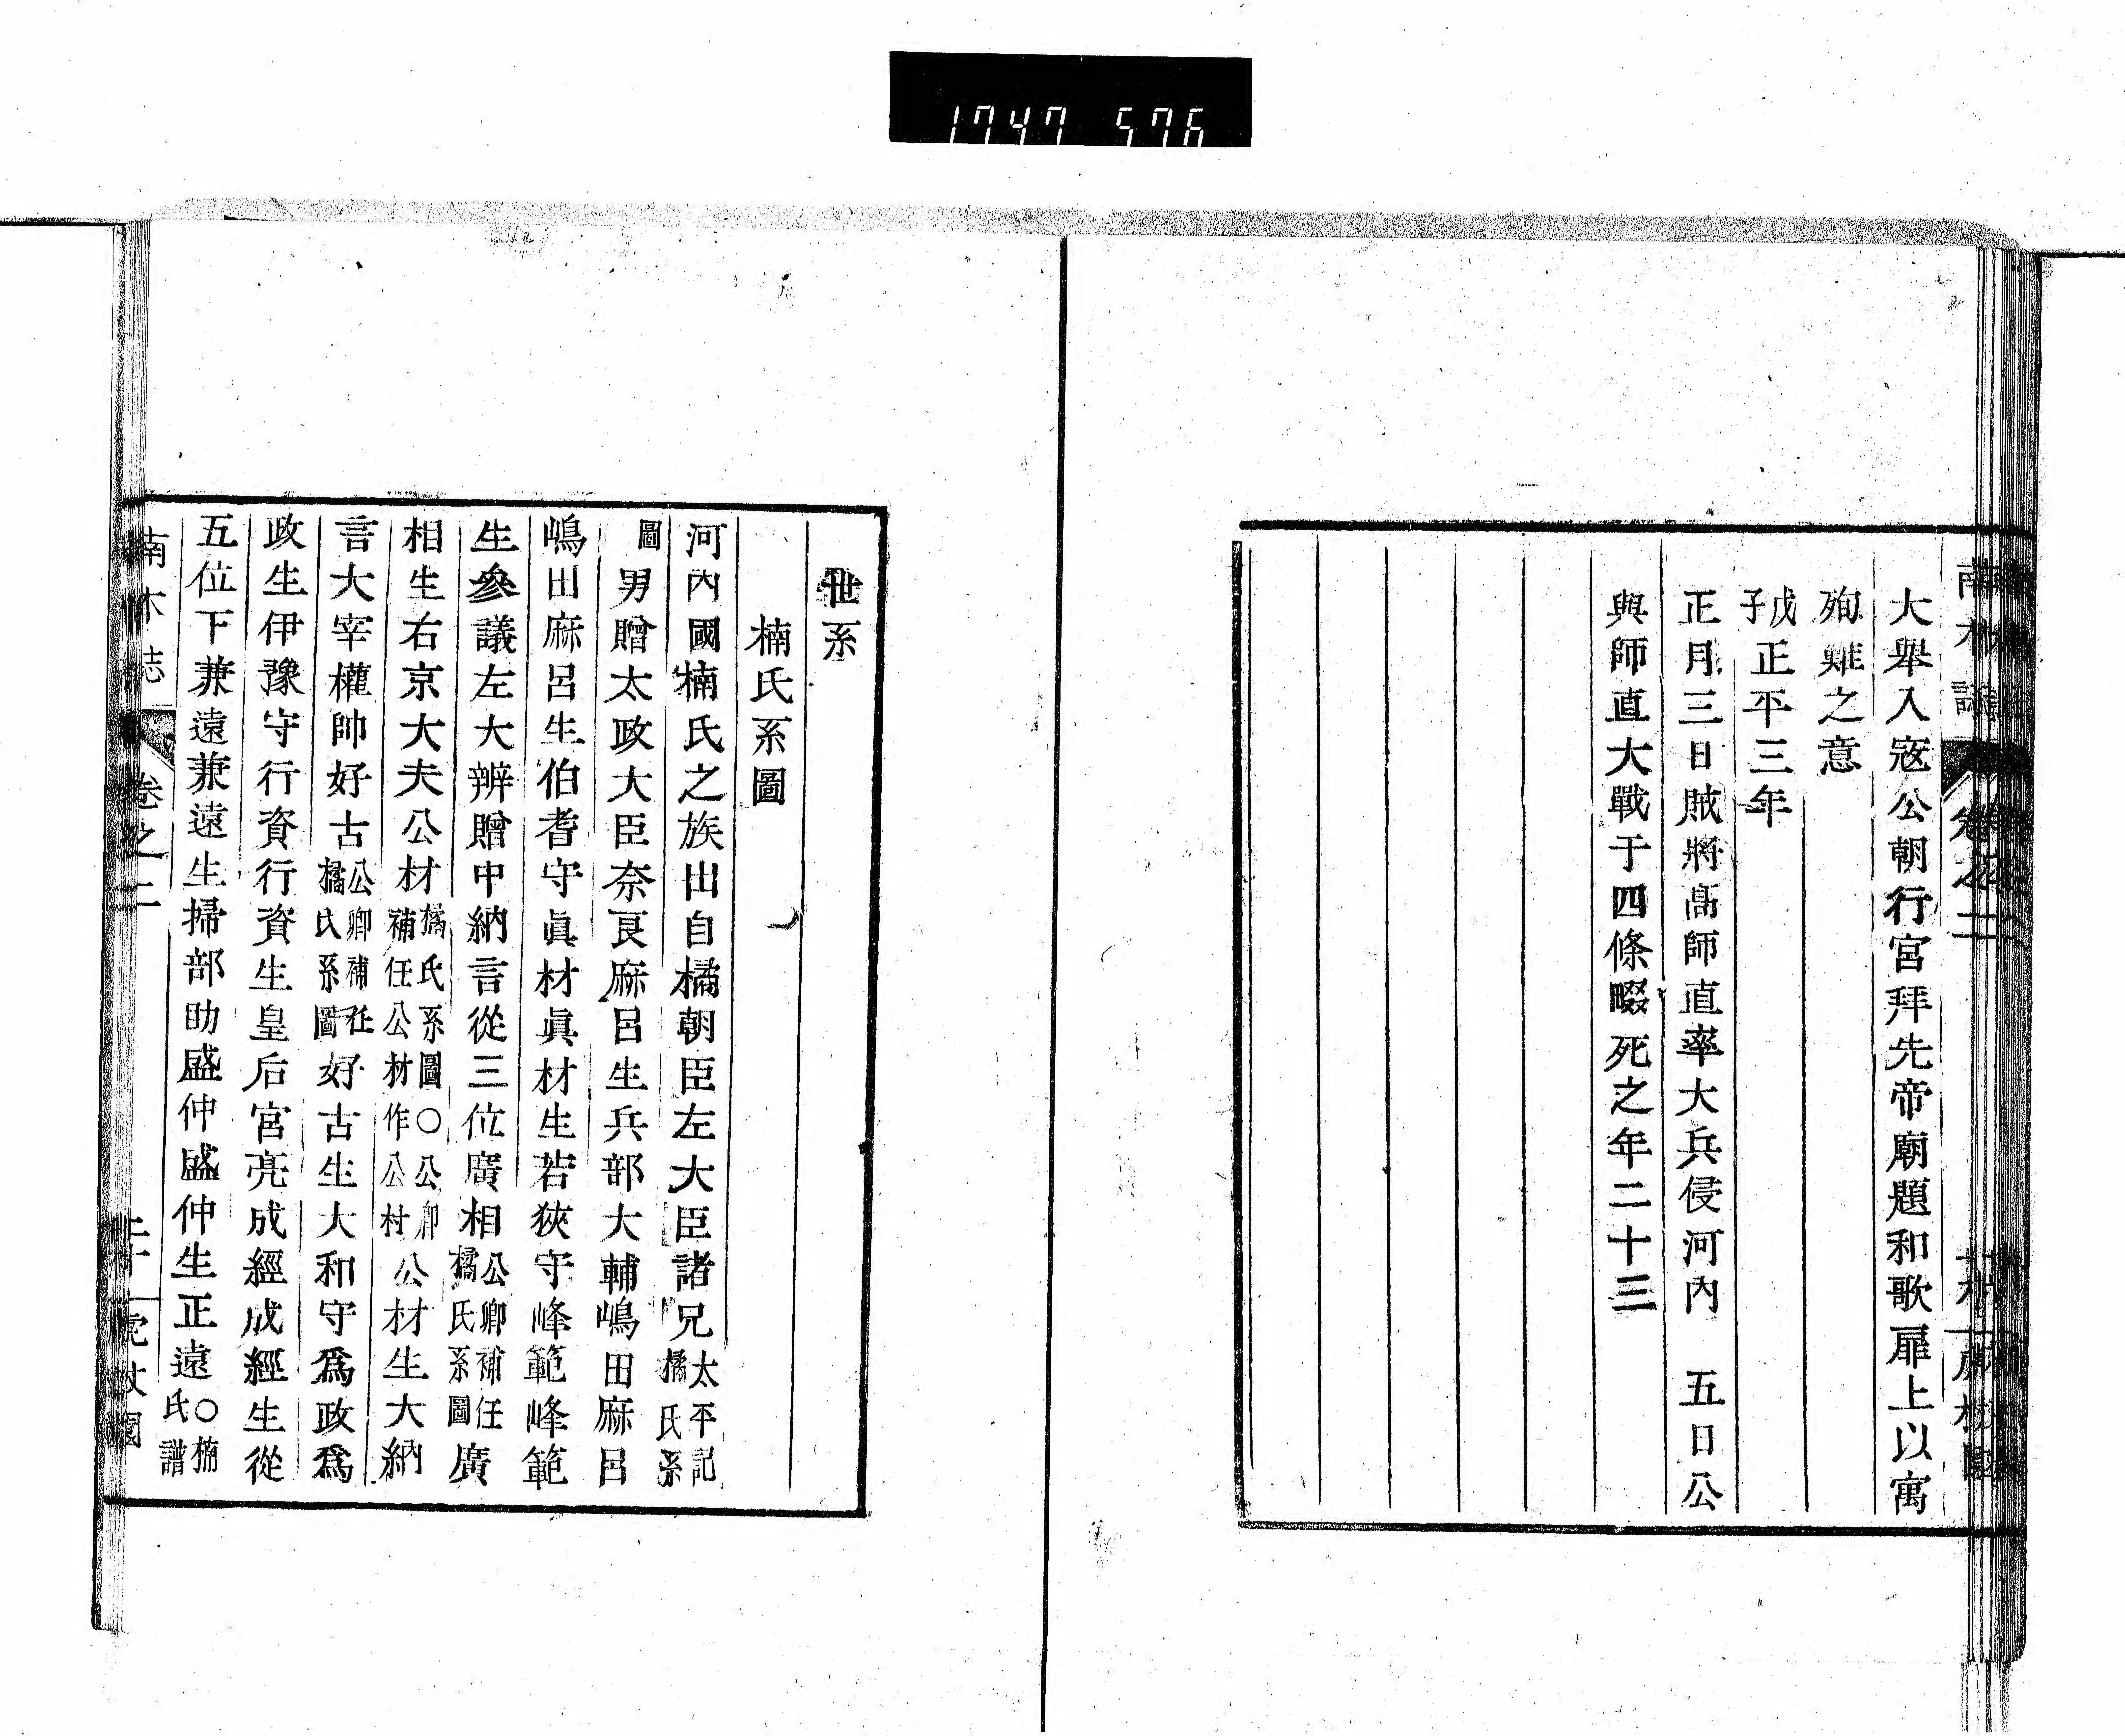 1747 576
大舉入寇公朝行宮拜先帝廟題和歌扉上以寓
殉難之意
戊子正平三年
正月三日賊將高師直率大兵侵河內　五日公
與師直大戰于四條畷死之年二十三
世系
楠氏系圖
河內國楠氏之族出自橘朝臣左大臣諸兄太平記橘氏系
圖男贈太政大臣奈良麻呂生兵部大輔嶋田麻呂
嶋田麻呂生伯耆守眞材眞材生若狹守峰範峰範
生參議左大辨贈中納言從三位廣相公卿補任橘氏系圖廣
相生右京大夫公材橘氏系圖○公卿補任公材作公村公材生大納
言大宰權帥好古公卿補任橘氏系圖好古生大和守爲政爲
政生伊豫守行資行資生皇后宮亮成經成經生從
五位下兼遠兼遠生掃部助盛仲盛仲生正遠○楠氏譜
南木誌
卷之二